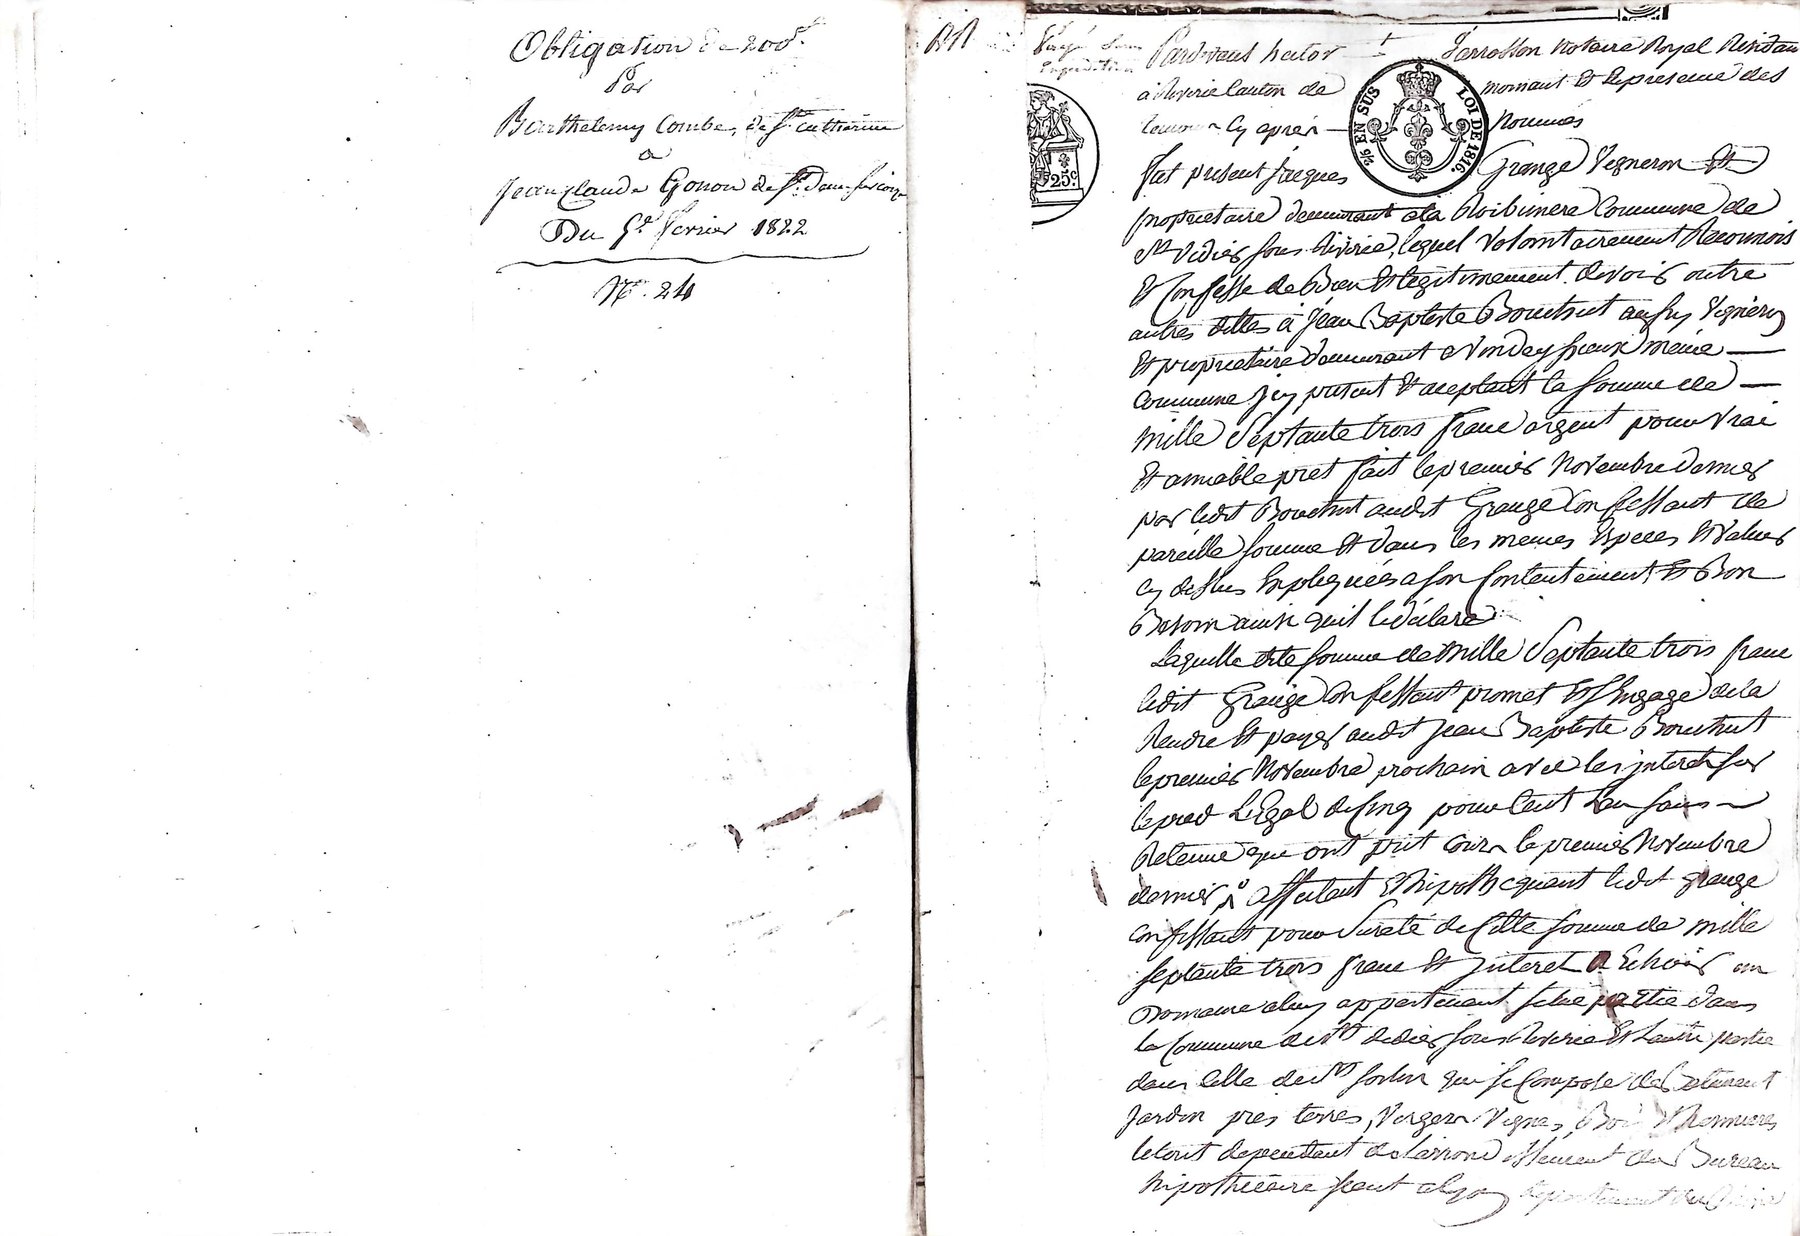 Obligation de 200f.
Par
Barthelemy Combe, de Ste. Catherine
a
Jean Claude Gonon de St.
Du 5e. fevrier 1822
No. 24
Expedition
Pardevant hector Ferrosson Notaire Royal Resident
a Riverie Canton de mornant Et En presence des
temoin Cy aprés Nommés
25c.
2/6 EN SUS LOI DE 1816.
fut present Jacques Grange Vigneron Et
proprietaire demeurant a la Commune de
St. Didier sous Riverie, lequel Volontairement Reconnois
Et Confesse de Bien Et legitimement devoir outre
autres dettes à Jean Baptiste Bouchut aussy Vigneron
Et proprietaire demeurant a même
Commune Jcy present Et aceptant la somme de
mille Septante trois franc argent pour Vrai
Et amiable pret fait le premier Novembre dernier
par ledit Bouchut audit Grange Confessant de
pareille somme Et dans les memes Especes Et Valeur
Cy dessus Expliquées a son Contentement Et Bon
Besoin ainsi quil le déclare
Laquelle dite somme de Mille Septante trois franc
ledit Grange Confessant promet Et s'Engage de la
Rendre Et payer audit Jean Baptiste Bouchut
le premier Novembre prochain avec les interet sur
le pied Legal de Cinq pour Cent Lan sans
Retenue que ont prit Cours le premier Novembre
dernier affectant Et hipothequant ledit grange
Confessant pour Sureté de Cette somme de mille
septante trois franc Et Jnteret a Echoir un
Domaine aluy appartenant situé partie dans
la Commune de St. didier sous Riverie Et Lautre partie
dans Celle de St. Sorlin qui se Compose de Batiment
Jardin pres terres, Verger Vignes, Bois Et
le tout dependant de Larrondissement du Bureau
hipothecaire seant a Lyon departement du Rhône